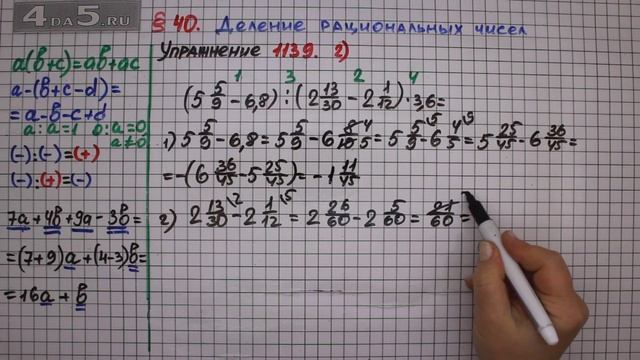 4DA5.RU
§ 40. Деление рациональных чисел
Упражнение 1139. г)
a(b+c)=ab+ac
a-(b+c-d)=
=a-b-c+d
a:a=1 0:a=0
a≠0
(-):(-)=(+)
(-):(+)=(-)
7a+4b+9a-3b=
=(7+9)a+(4-3)b=
=16a+b
1 3 2 4
(5 5/9 - 6,8):(2 13/30 - 2 1/12)·3,6=
1) 5 5/9 - 6,8 = 5 5/9 - 6 8/10 4/5 = 5 5/9 \5 - 6 4/5 \9 = 5 25/45 - 6 36/45 =
=-(6 36/45 - 5 25/45)= -1 11/45
2) 2 13/30 \2 - 2 1/12 \5 = 2 26/60 - 2 5/60 = 21/60 =